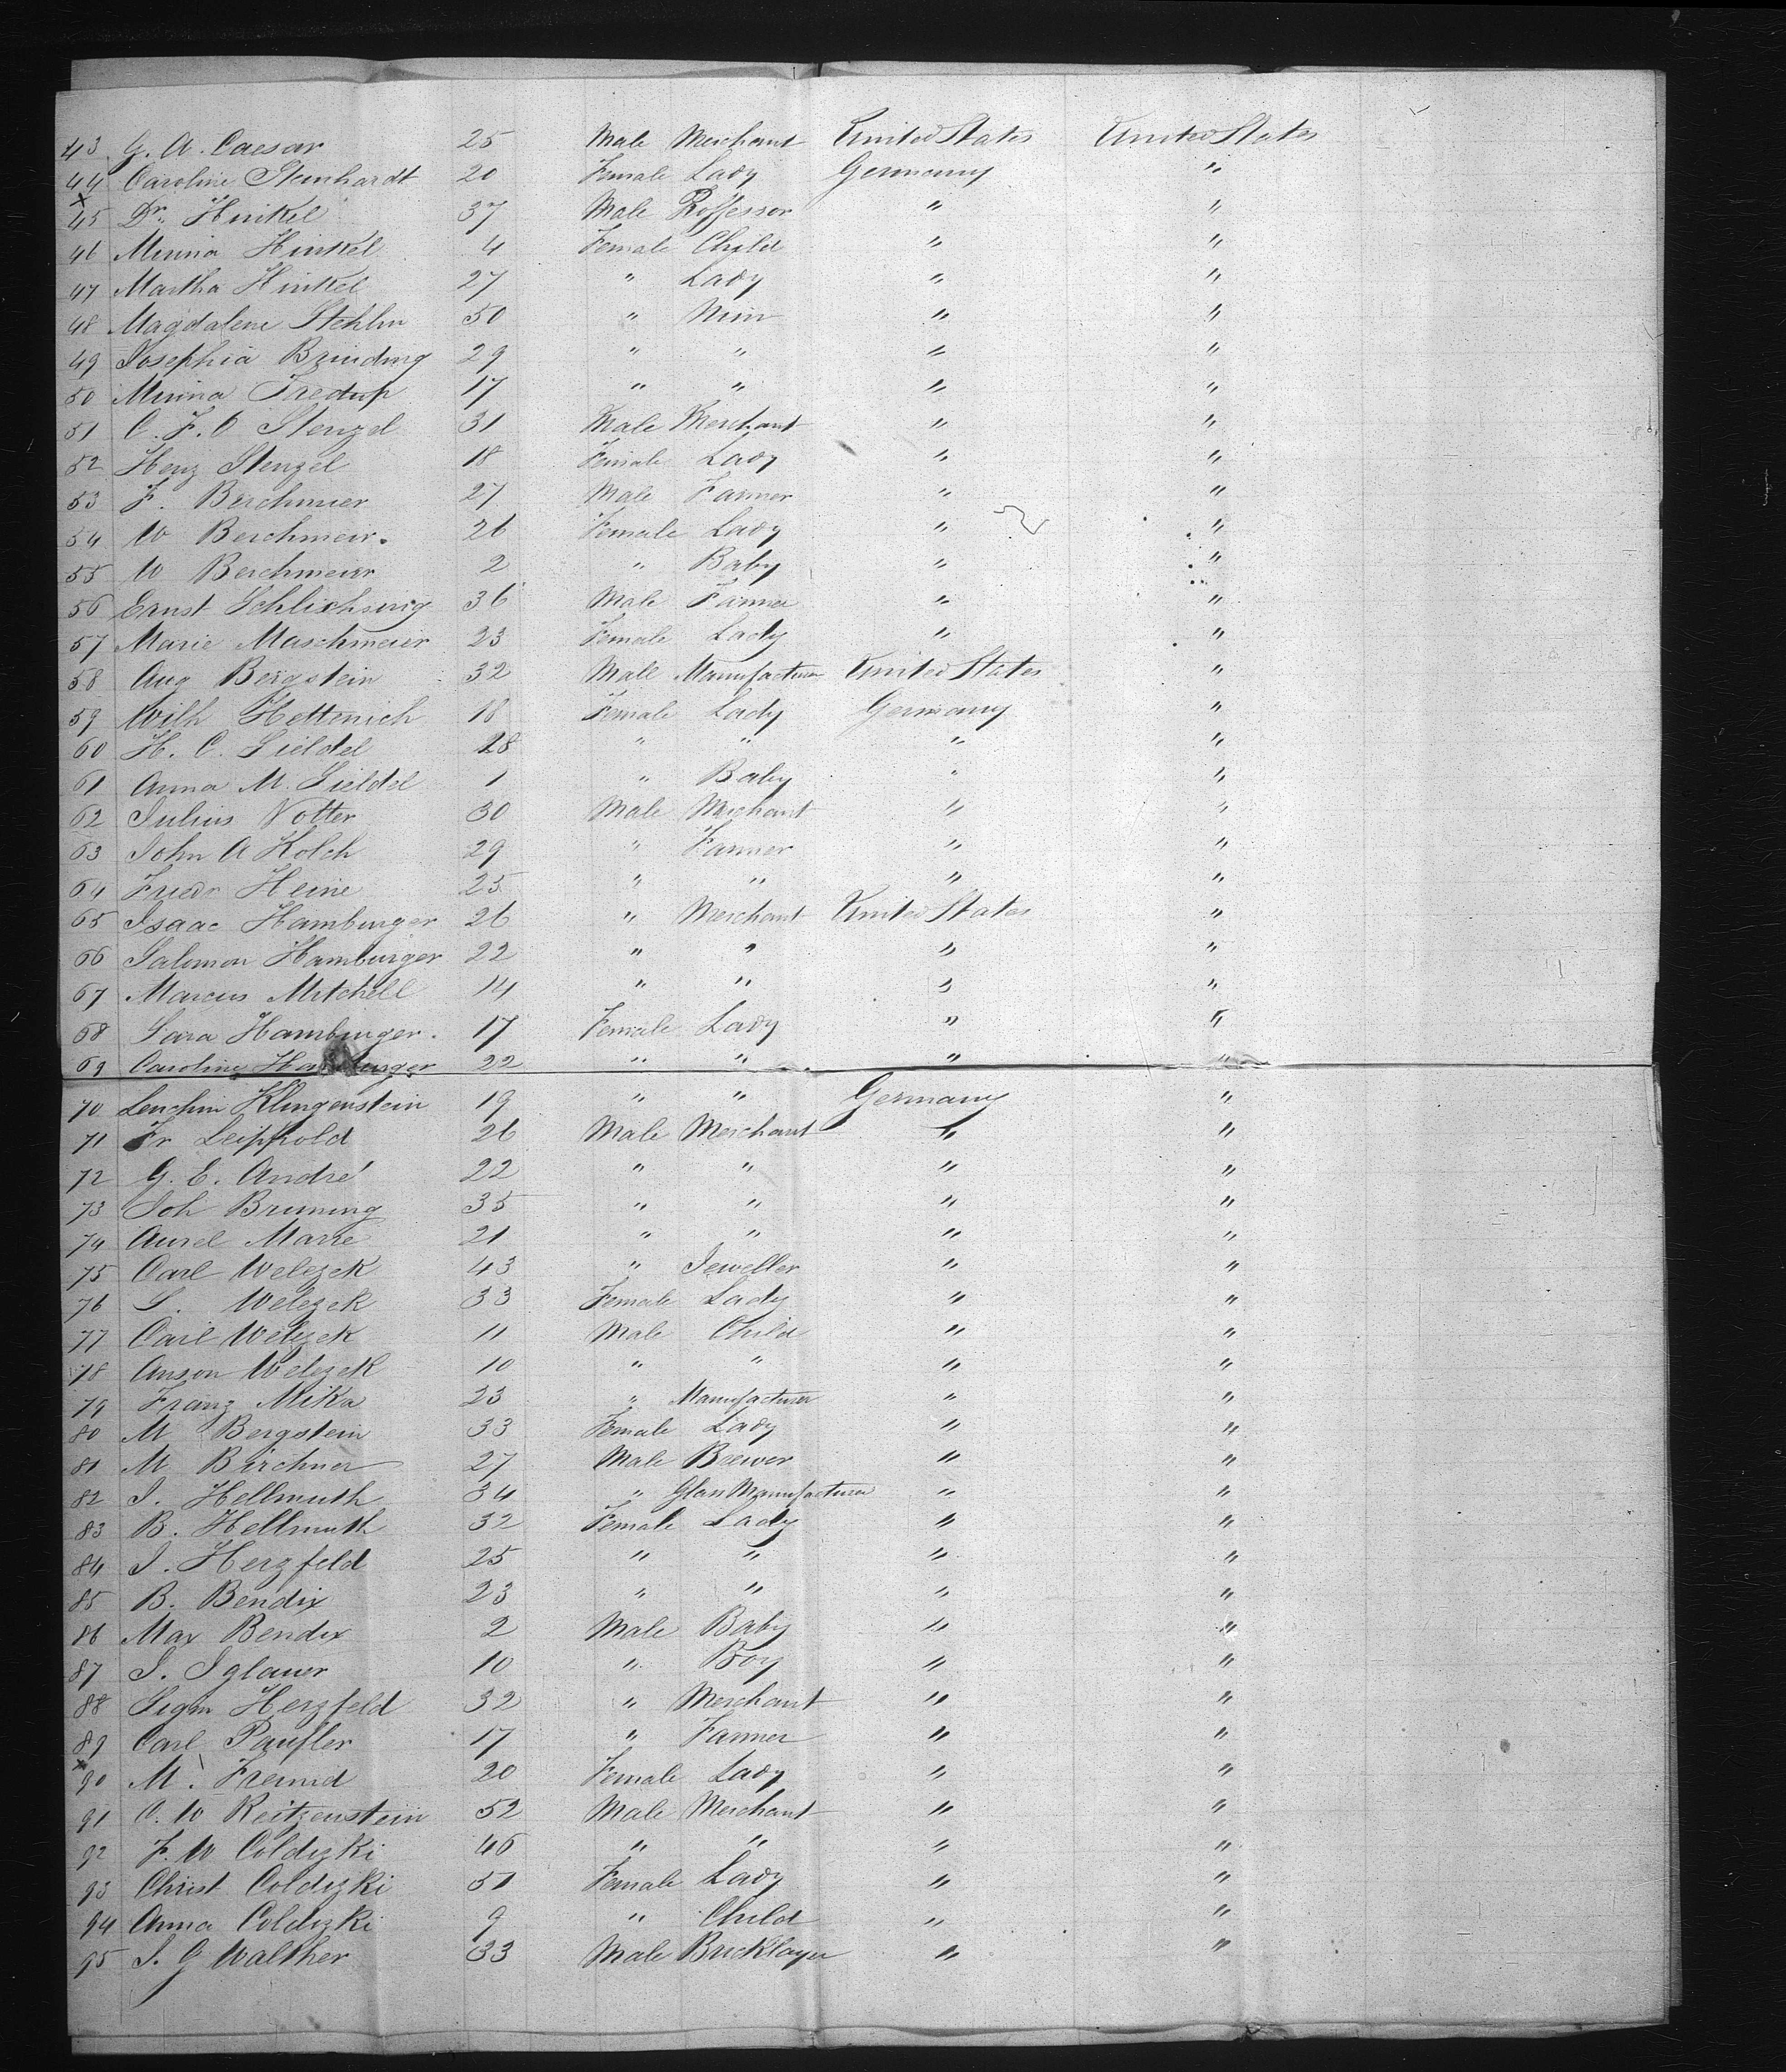 43 G. A. Caesar 25 Male Merchant United States United States
44 Caroline Steinhardt 20 Female Lady Germany "
x
45 Dr. Hinkel 37 Male Proffessor " "
46 Minna Hinkel 4 Female Child " "
47 Martha Hinkel 27 " Lady " "
48 Magdalene Stehlin 50 " Nun " "
49 Josephia Brinding 29 " " " "
50 Minna Tredup 17 " " " "
51 C. F. O Stenzel 31 Male Merchant " "
52 Henz Stenzel 18 Female Lady " "
53 F. Berchmier 27 Male Farmer " "
54 W Berchmeir. 26 Female Lady " "
55 W Berchmeier 2 " Baby " "
56 Ernst Schlichsing 36 Male Farmer " "
57 Marie Maschmeier 23 Female Lady " "
58 Aug Bergstein 32 Male Manufacturer United States "
59 Wilh Hettenich 18 Female Lady Germany "
60 H. C. Sieldel 28 " " " "
61 Anna M. Sieldel 1 " Baby " "
62 Julius Notter 30 Male Merchant " "
63 John A Kolch 29 " Farmer " "
64 Friedr Heine 25 " " " "
65 Isaac Hamburger 26 " Merchant United States "
66 Salomon Hamburger 22 " " " "
67 Marcus Mitchell 14 " " " "
68 Sara Hamburger. 17 Female Lady " "
69 Caroline Hamburger 22 " " " "
70 Lenchin Klingenstein 19 " " Germany "
71 Fr Leippold 26 Male Merchant " "
72 G. E. André 22 " " " "
73 Joh Bruning 35 " " " "
74 Aurel Marre 21 " " " "
75 Carl Welezek 43 " Jeweller " "
76 S. Welezek 33 Female Lady " "
77 Carl Welezek 11 Male Child " "
78 Anson Welezek 10 " " " "
79 Franz Mika 23 " Manufacturer " "
80 M Bergstein 33 Female Lady " "
81 M Birchner 27 Male Brewer " "
82 I. Hellmuth 34 " Glass Manufacturer " "
83 B. Hellmuth 32 Female Lady " "
84 I. Herzfeld 25 " " " "
85 B. Bendix 23 " " " "
86 Max Bendix 2 Male Baby " "
87 S. Iglauer 10 " Boy " "
88 Sigm Herzfeld 32 " Merchant " "
89 Carl Paufler 17 " Farmer " "
x
90 M. Freund 20 Female Lady " "
91 C. W Reitzenstein 52 Male Merchant " "
92 F. W Coldizki 46 " " " "
93 Christ Coldizki 51 Female Lady " "
94 Anna Coldizki 9 " Child " "
95 I. G Walther 33 Male Bricklayer " "